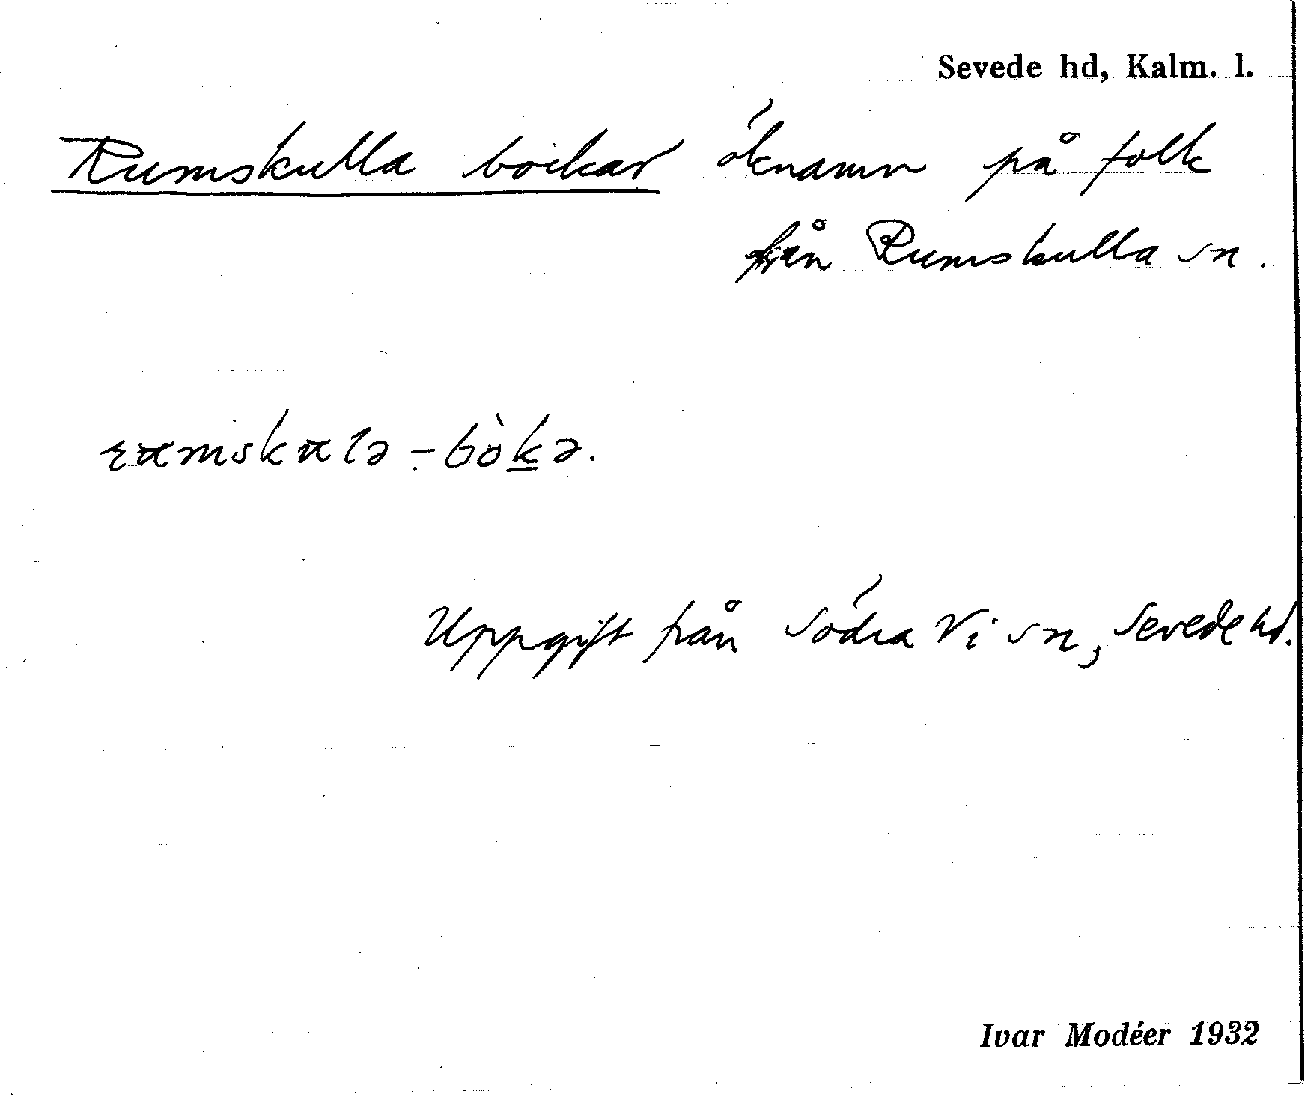 Sevede hd, Kalm. l.
Rumskulla bockar öknamn på folk
från Rumskulla sn.
Uppgift från Södra Vi sn, Sevede hd.
Ivar Modéer 1932